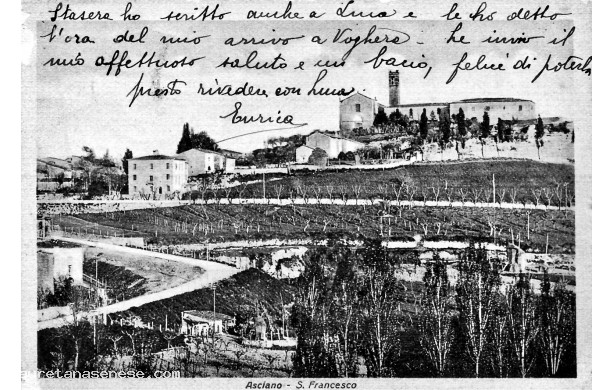 Stasera ho scritto anche a Luca e le ho detto
l'ora del mio arrivo a Voghera. Le invio il
mio affettuoso saluto e un bacio, felice di poterla
presto rivedere con Luca.
Enrica
Asciano - S. Francesco
uretanasenese.com